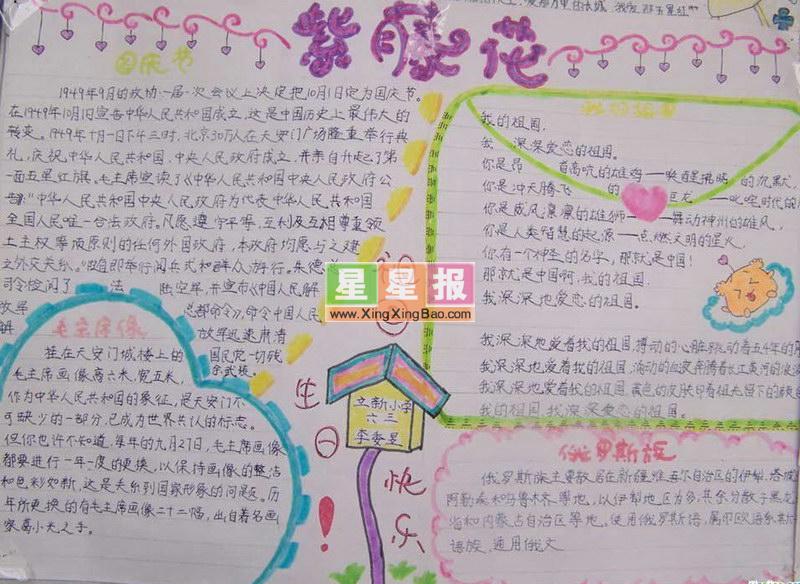 紫藤花
国庆节
1949年9月的政协一届一次会议上决定把10月1日定为国庆节。
在1949年10月1日宣告中华人民共和国成立,这是中国历史上最伟大的
转变。1949年十月一日下午三时,北京30万人在天安门广场隆重举行典
礼,庆祝中华人民共和国,中央人民政府成立,并亲自升起了第
一面五星红旗。毛主席宣读了《中华人民共和国中央人民政府公
告》:"中华人民共和国中央人民政府为代表中华人民共和国
全国人民唯一合法政府。凡愿遵守平等,互利及互相尊重领
土主权等项原则的任何外国政府,本政府均愿与之建
立外交关系。"随即举行阅兵式和群众游行。朱德
司令检阅了 法 陆空军,并宣布《中国人民解
放军 总部命令》,命令中国人民
解 放军迅速肃清
国民党一切残
余武装。
毛主席像
挂在天安门城楼上的
毛主席画像高六米,宽五米,
作为中华人民共和国的象征,是天安门不
可缺少的一部分,已成为世界共认的标志。
但你也许不知道,每年的九月27日,毛主席画像
都要进行一年一度的更换,以保持画像的整洁
和色彩如新,这是关系到国家形象的问题。历
年所更换的有毛主席画像二十二幅,出自着名画
家葛小光之手。
祖
国
生
日
快
乐
!
立新小学
六三
星星报
www.XingXingBao.com
我的祖国
我的祖国,
我 深深爱恋的祖国。
你是昂 首高吭的雄鸡——唤醒拂晓的沉默,
你是冲天腾飞的 巨龙——叱咤时代的
你是威风凛凛的雄狮——舞动神州的雄风,
你是人类智慧的起源——点燃文明的星火。
你有一个神圣的名字,那就是中国!
那就是中国啊,我的祖国。
我深深地爱恋的祖国。
我深深地爱着我的祖国,搏动的心脏跳动着五千年的
我深深地爱着我的祖国,涌动的血液奔腾着长江黄河的
我深深地爱着我的祖国,黄色的皮肤印着祖先留下的
我的祖国,我深深爱恋的祖国。
俄罗斯族
俄罗斯族主要散居在新疆维吾尔自治区的伊犁、塔城
阿勒泰和乌鲁木齐等地,以伊犁地区为多,其余分散于黑龙
江和内蒙古自治区等地。使用俄罗斯语,属印欧语系斯
语族,通用俄文